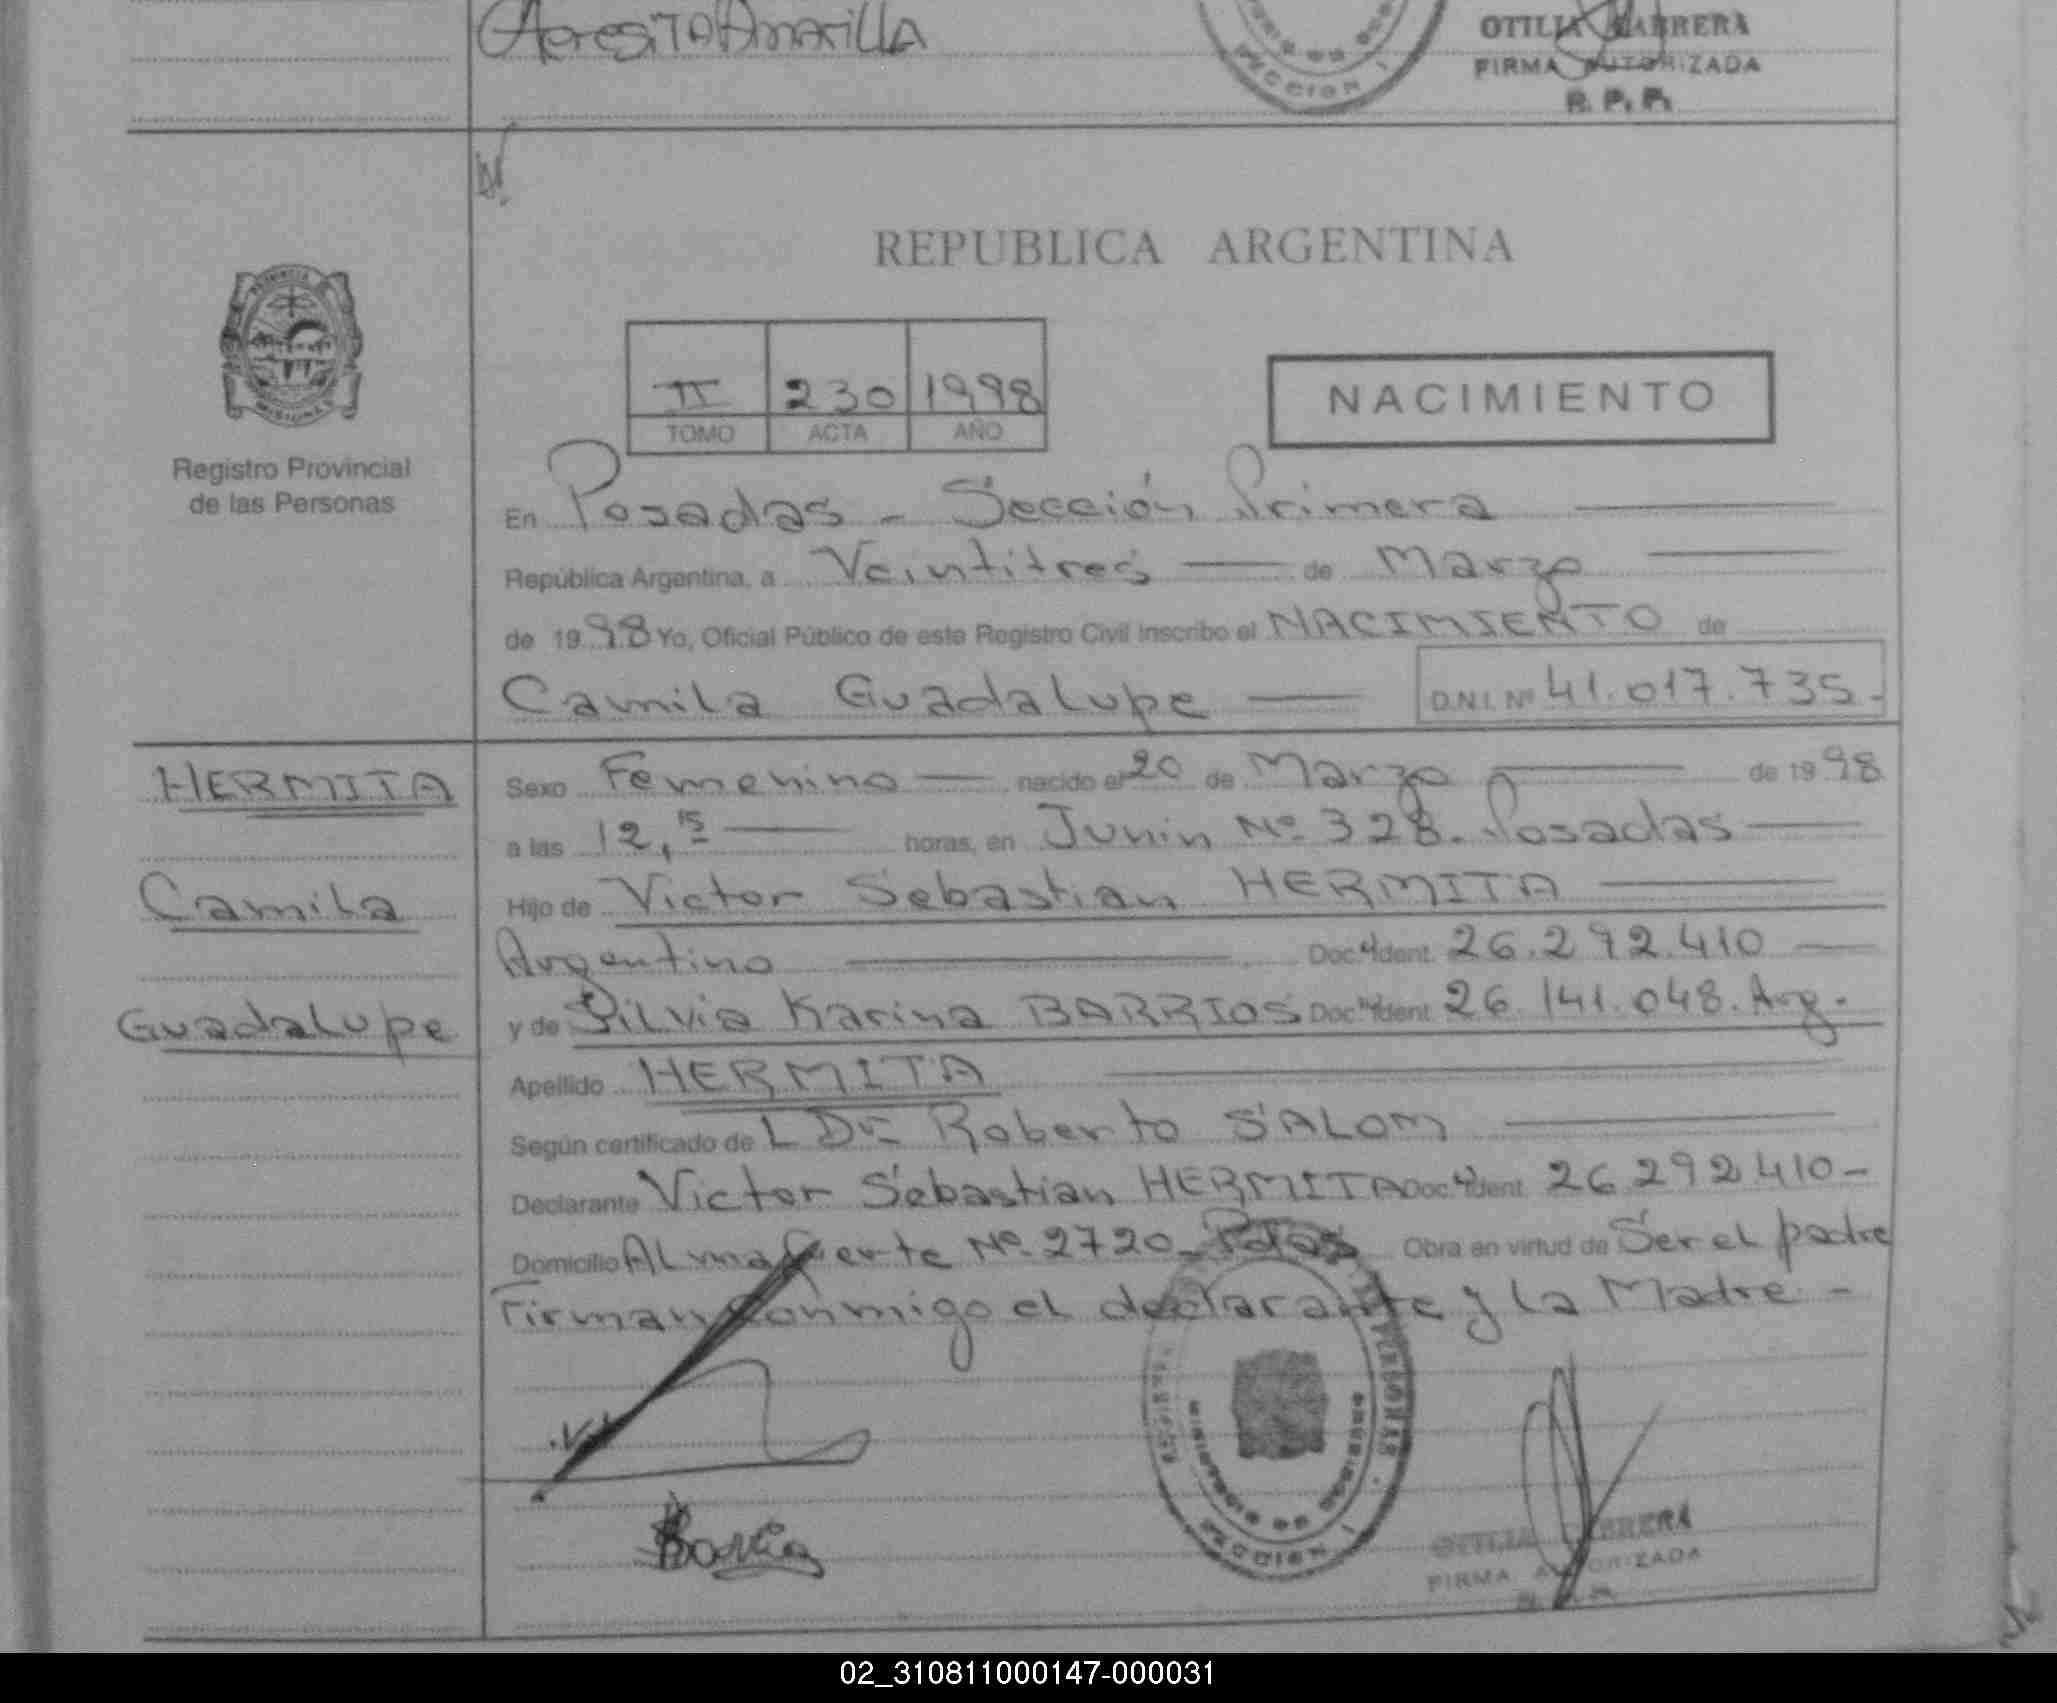 Teresita Amarilla
SECCION 1
OTILIA CABRERA
FIRMA AUTORIZADA
R. P. P.
REPUBLICA ARGENTINA
MISIONES
Registro Provincial
de las Personas
II 230 1998
TOMO ACTA AÑO
NACIMIENTO
En Posadas - Sección Primera
República Argentina, a Veintitres de Marzo
de 1998 Yo, Oficial Público de este Registro Civil inscribo el NACIMIENTO de
Camila Guadalupe D.N.I. Nº 41.017.735.-
HERMITA
Camila
Guadalupe
Sexo Femenino nacido el 20 de Marzo de 1998
a las 12,15 horas, en Junin Nº 328. Posadas
Hijo de Victor Sebastian HERMITA
Argentino Doc. Ident. 26.292.410
y de Silvia Karina BARRIOS Doc. Ident. 26.141.048. Arg.
Apellido HERMITA
Según certificado de L Dr. Roberto SALOM
Declarante Victor Sebastian HERMITA Doc. Ident. 26 292 410-
Domicilio Almafuerte Nº 2720 - Pdas Obra en virtud de Ser el padre
Firman Conmigo el declarante y la Madre -
SECCION 1
OTILIA CABRERA
FIRMA AUTORIZADA
02_310811000147-000031